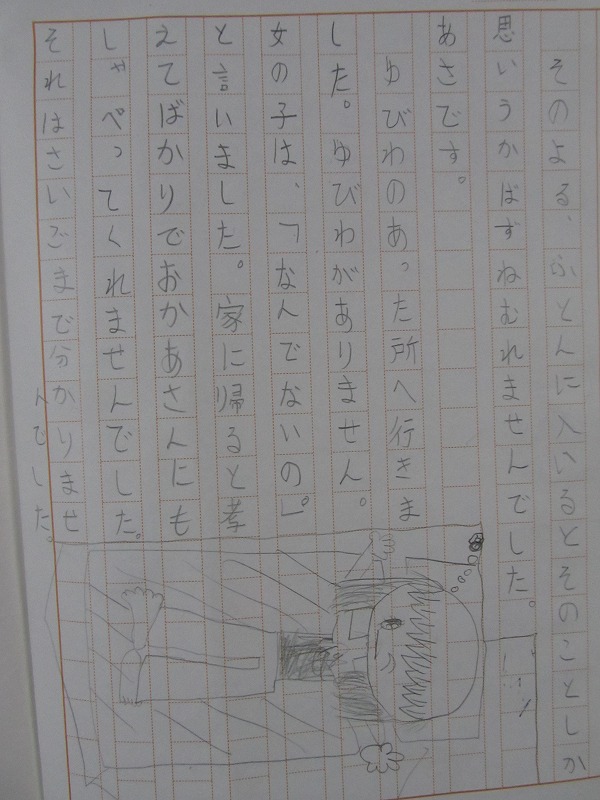 そのよる、ふとんに入いるとそのことしか
思いうかばずねむれませんでした。
あさです。
ゆびわのあった所へ行きま
した。ゆびわがありません。
女の子は、「なんでないの」。
と言いました。家に帰ると孝
えてばかりでおかあさんにも
しゃべってくれませんでした。
それはさいごまで分かりませ
んでした。